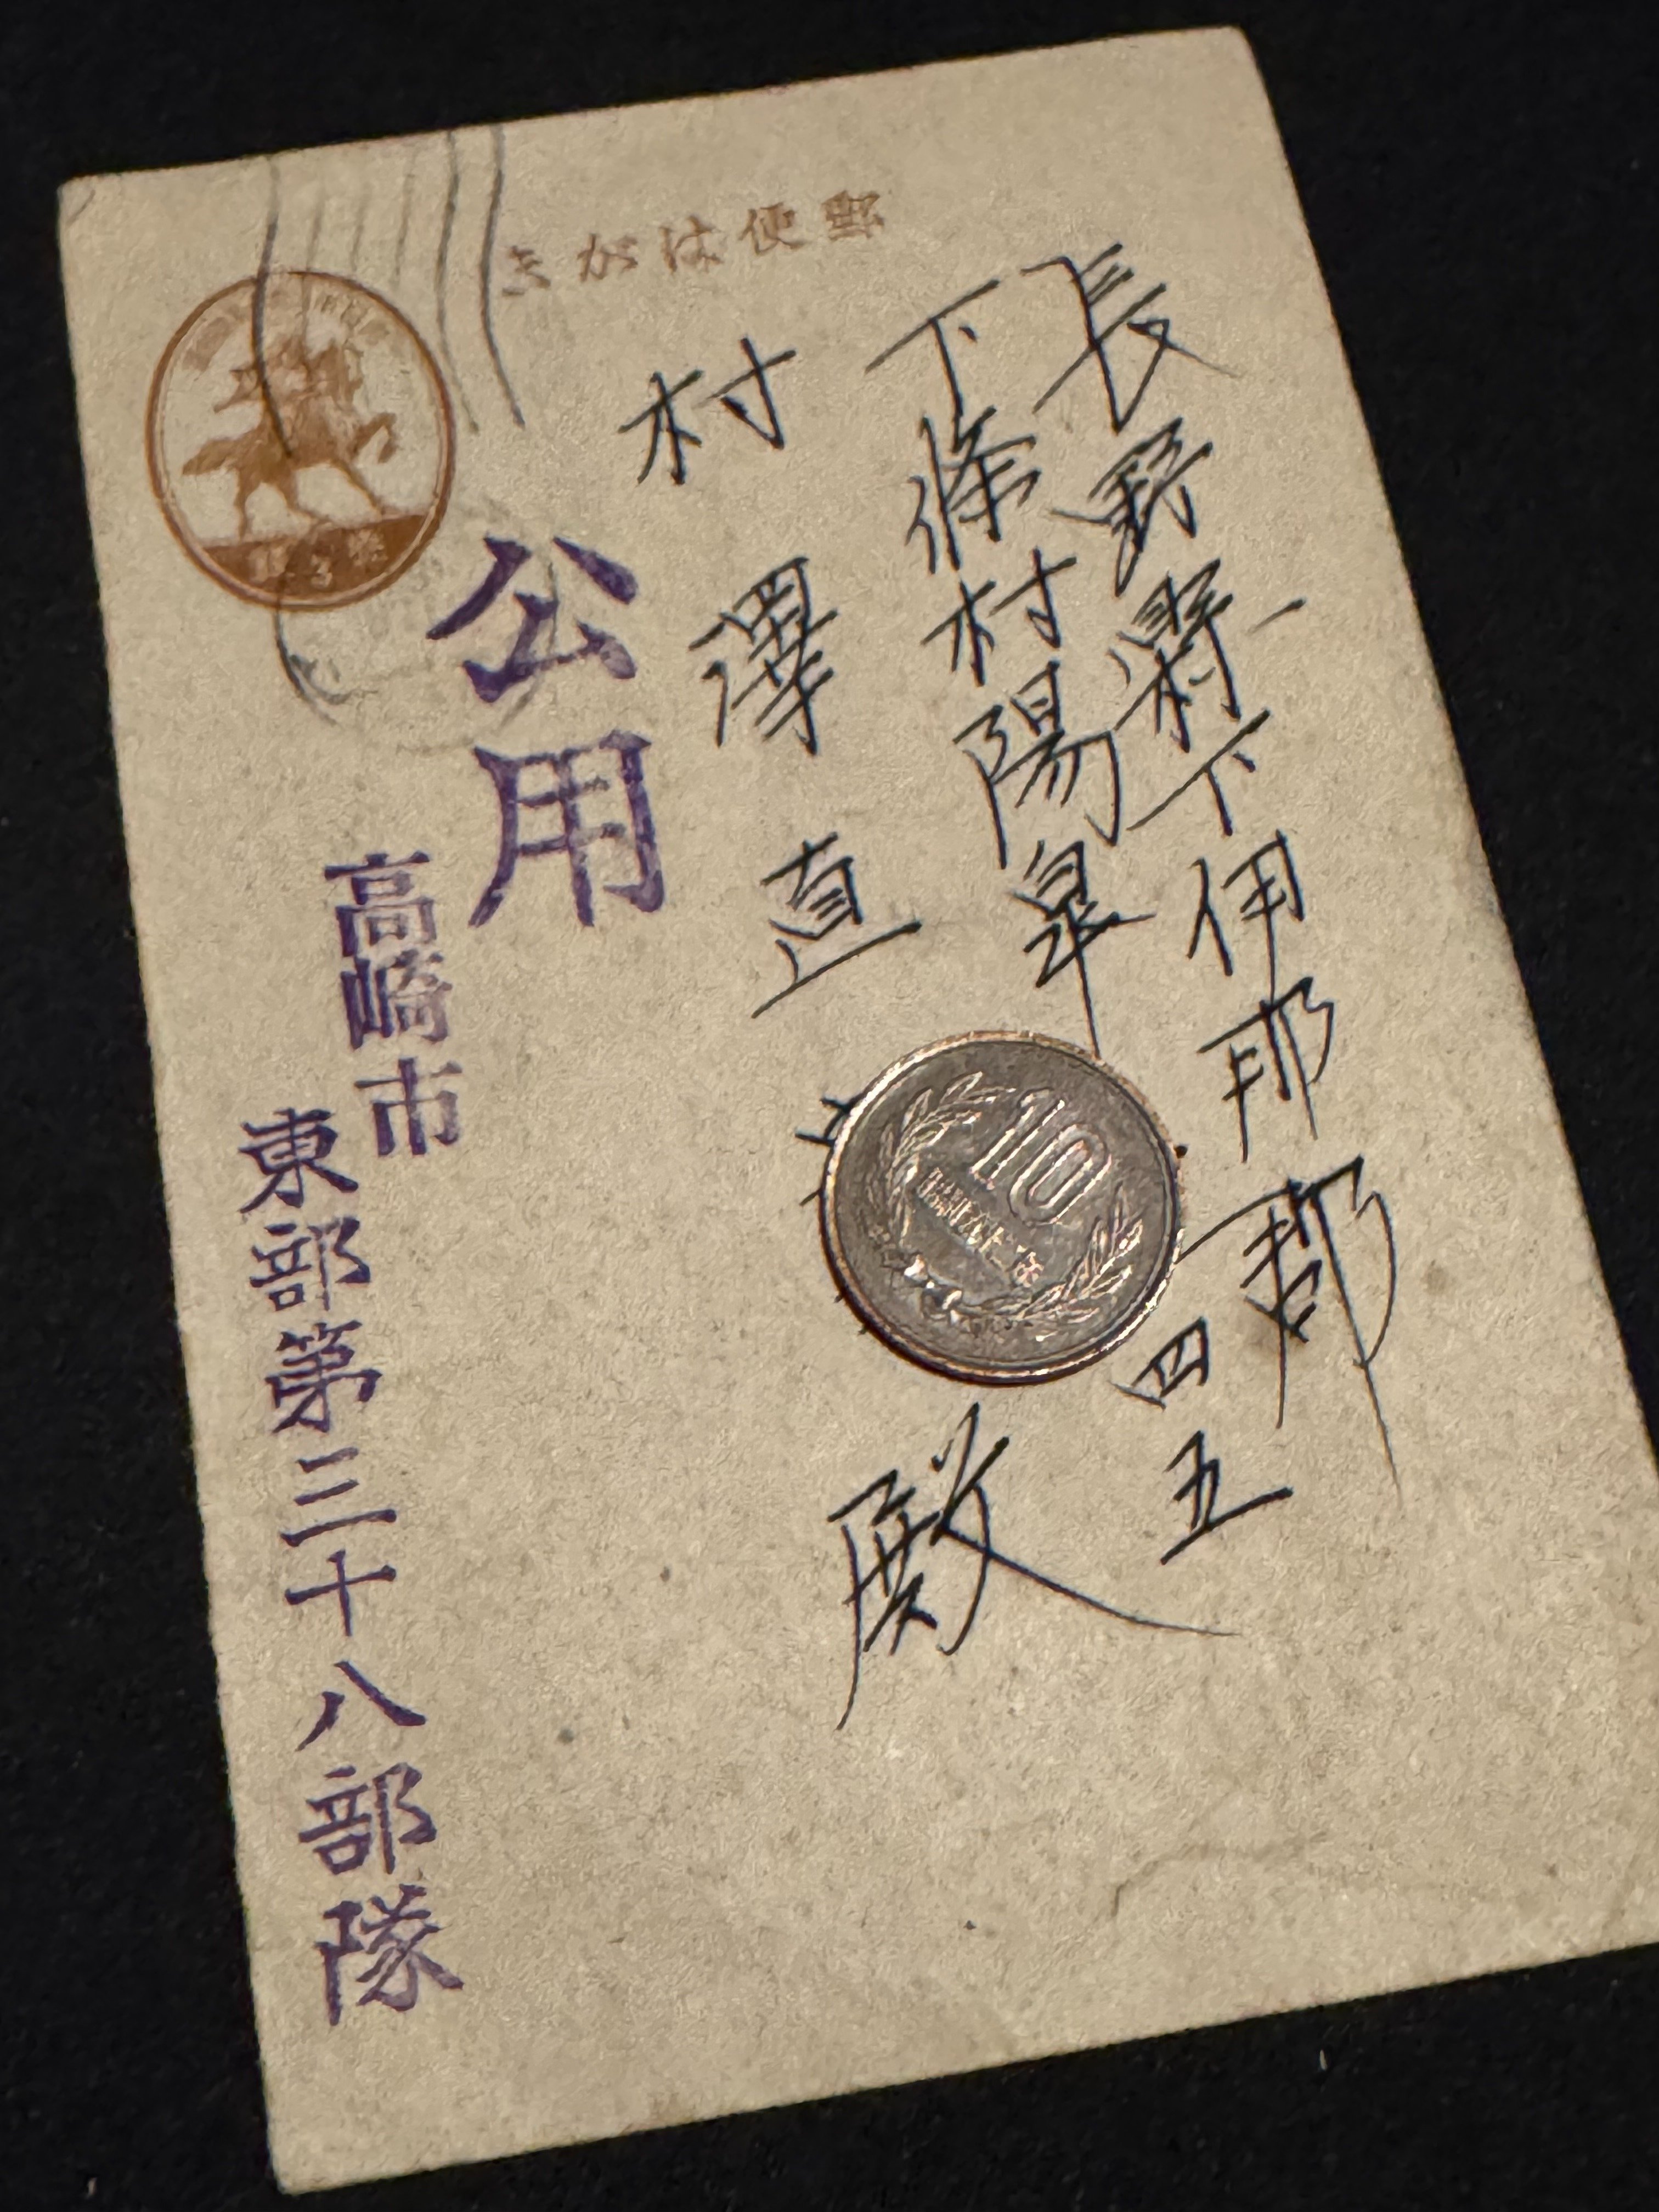 郵便はがき
長野縣下伊那郡
下條村陽皐
四五
村澤直
殿
公用
高崎市
東部第三十八部隊
10